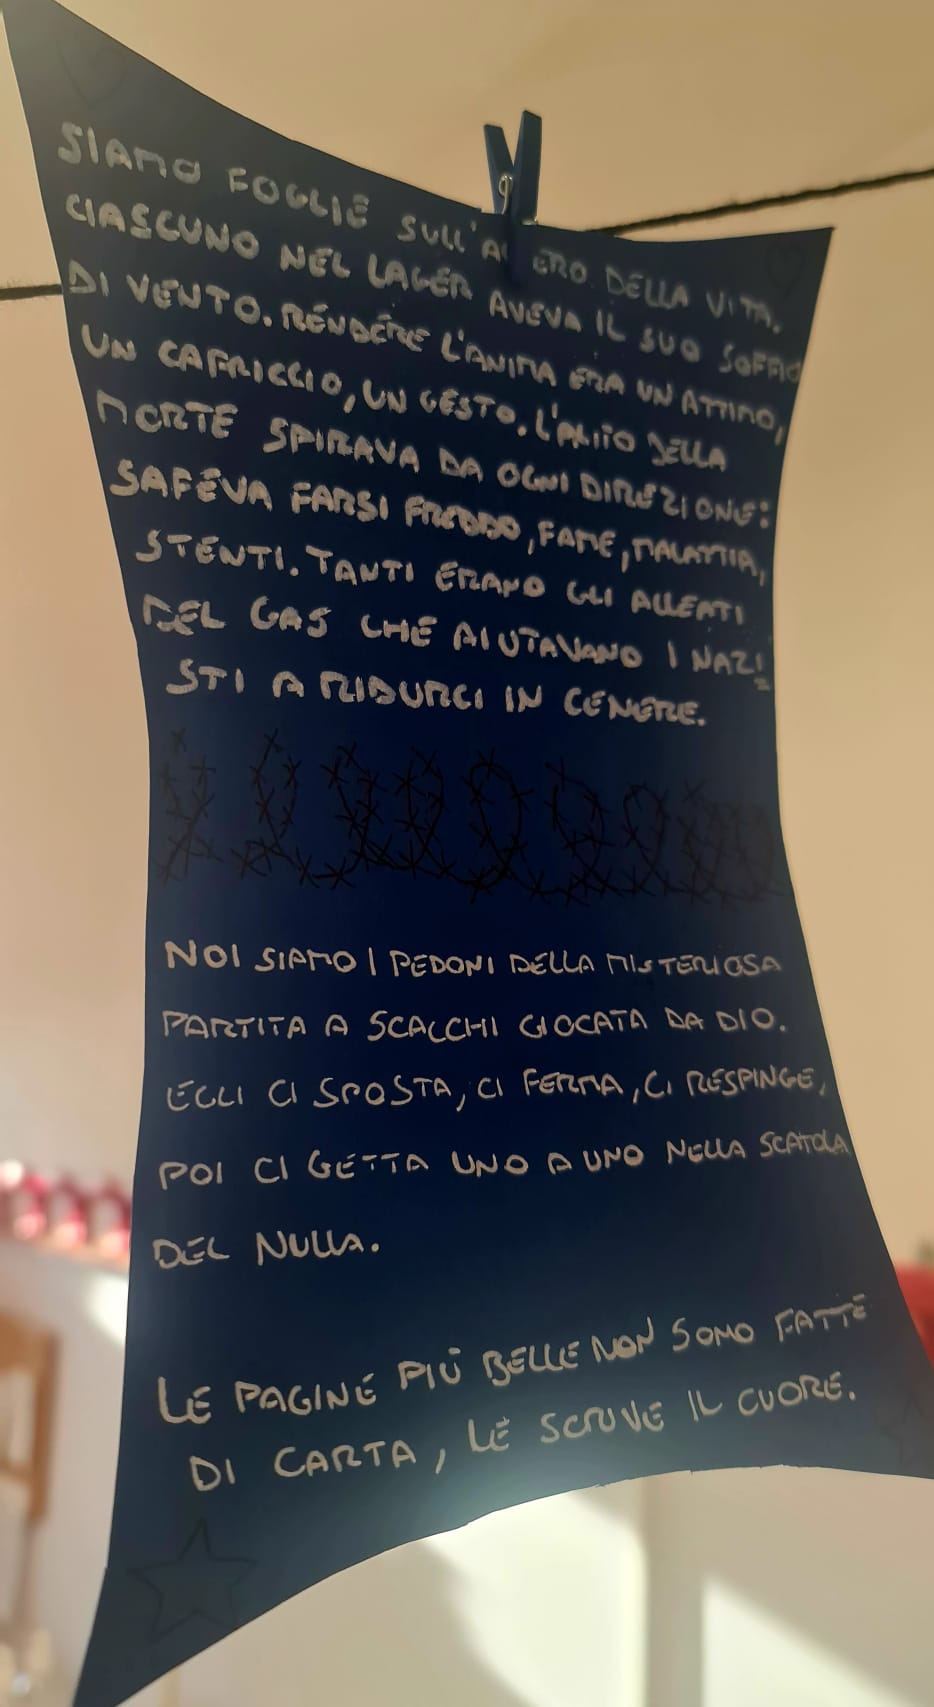 SIAMO FOGLIE SULL'ALBERO DELLA VITA.
CIASCUNO NEL LAGER AVEVA IL SUO SOFFIO
DI VENTO. RENDERE L'ANIMA ERA UN ATTIMO,
UN CAPRICCIO, UN GESTO. L'ALITO DELLA
MORTE SPIRAVA DA OGNI DIREZIONE:
SAPEVA FARSI FREDDO, FAME, MALATTIA,
STENTI. TANTI ERANO GLI ALLEATI
DEL GAS CHE AIUTAVANO I NAZI
STI A RIDURCI IN CENERE.
NOI SIAMO I PEDONI DELLA MISTERIOSA
PARTITA A SCACCHI GIOCATA DA DIO.
EGLI CI SPOSTA, CI FERMA, CI RESPINGE,
POI CI GETTA UNO A UNO NELLA SCATOLA
DEL NULLA.
LE PAGINE PIÙ BELLE NON SONO FATTE
DI CARTA, LE SCRIVE IL CUORE.